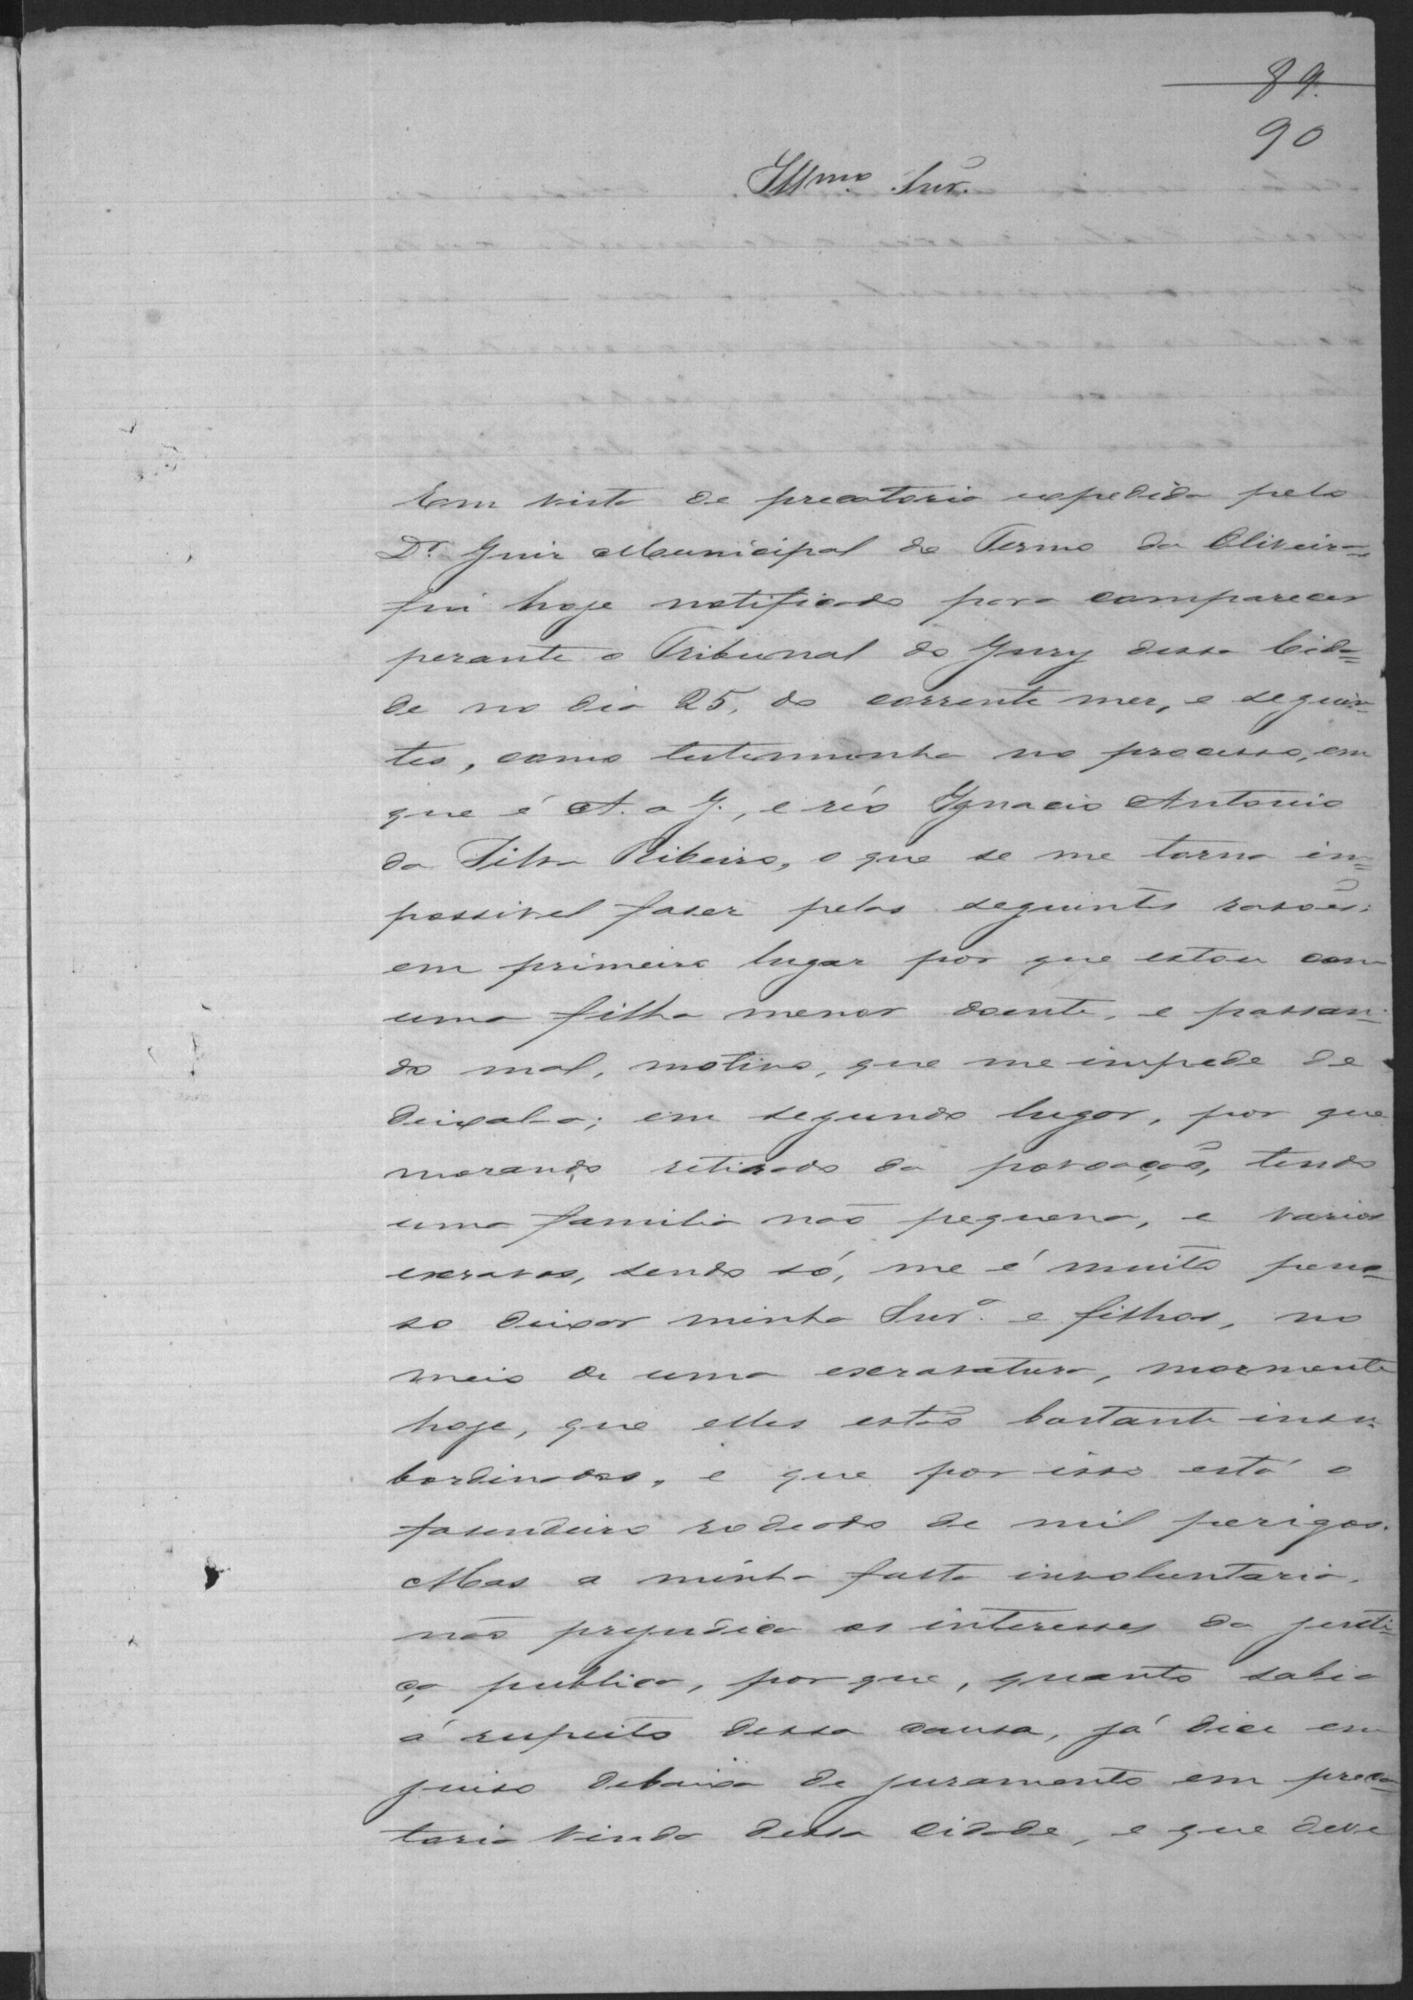 89.
90
Illmo. Snr.
Em vista de precatoria expedida pelo
Dr. Juiz Municipal do Termo da Oliveira
fui hoje notificado para comparecer
perante o Tribunal do Jury dessa Cida=
de no dia 25, do corrente mez, e seguin=
tes, como testemunha no processo, em
que é A. a J., e réo Ignacio Antonio
da Silva Ribeiro, o que se me torna im=
possivel faser pelas seguintes rasões:
em primeiro lugar por que estou com
uma filha menor doente, e passan=
do mal, motivo, que me impede de
deixal-a; em segundo lugar, por que
morando retirado da povoação, tendo
uma familia não pequena, e varios
escravos, sendo só, me é muito peno=
so deixar minha Snra. e filhos, no
meio de uma escravatura, mormente
hoje, que elles estão bastante insu=
bordinados, e que por isso está o
fasendeiro rodeado de mil perigos.
Mas a minha falta involuntaria,
não prejudica os interesses da justi=
ça publica, por que, quanto sabia
á respeito dessa causa, já dice em
juiso debaixo de juramento em preca=
toria vinda dessa cidade, e que deve